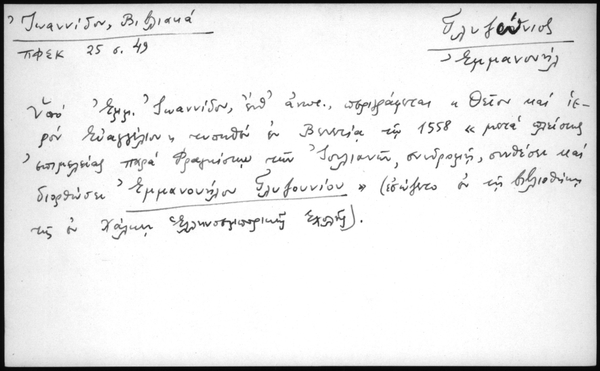 Ἰωαννίδου, Βιβλιακά
ΠΦΣΚ 25 σ. 49
Γλυζούνιος
Ἐμμανουήλ
Ὑπό Ἐμμ. Ἰωαννίδου, ἔνθ' ἀνωτ., περιγράφεται « Θεῖον καί ἱε-
ρόν Εὐαγγέλιον, τυπωθέν ἐν Βενετίᾳ τῷ 1558 « μετά πλείστης
ἐπιμελείας παρά Φραγκίσκῳ τῷ Ἰουλιανῷ, συνδρομῇ, συνθέσει καί
διορθώσει Ἐμμανουήλου Γλυζουνίου » (ἐσώζετο ἐν τῇ βιβλιοθήκῃ
τῆς ἐν Χάλκῃ Ἑλληνοεμπορικῆς Σχολῆς).